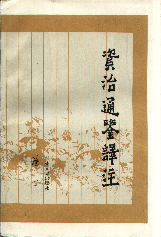 資治通鑒譯注